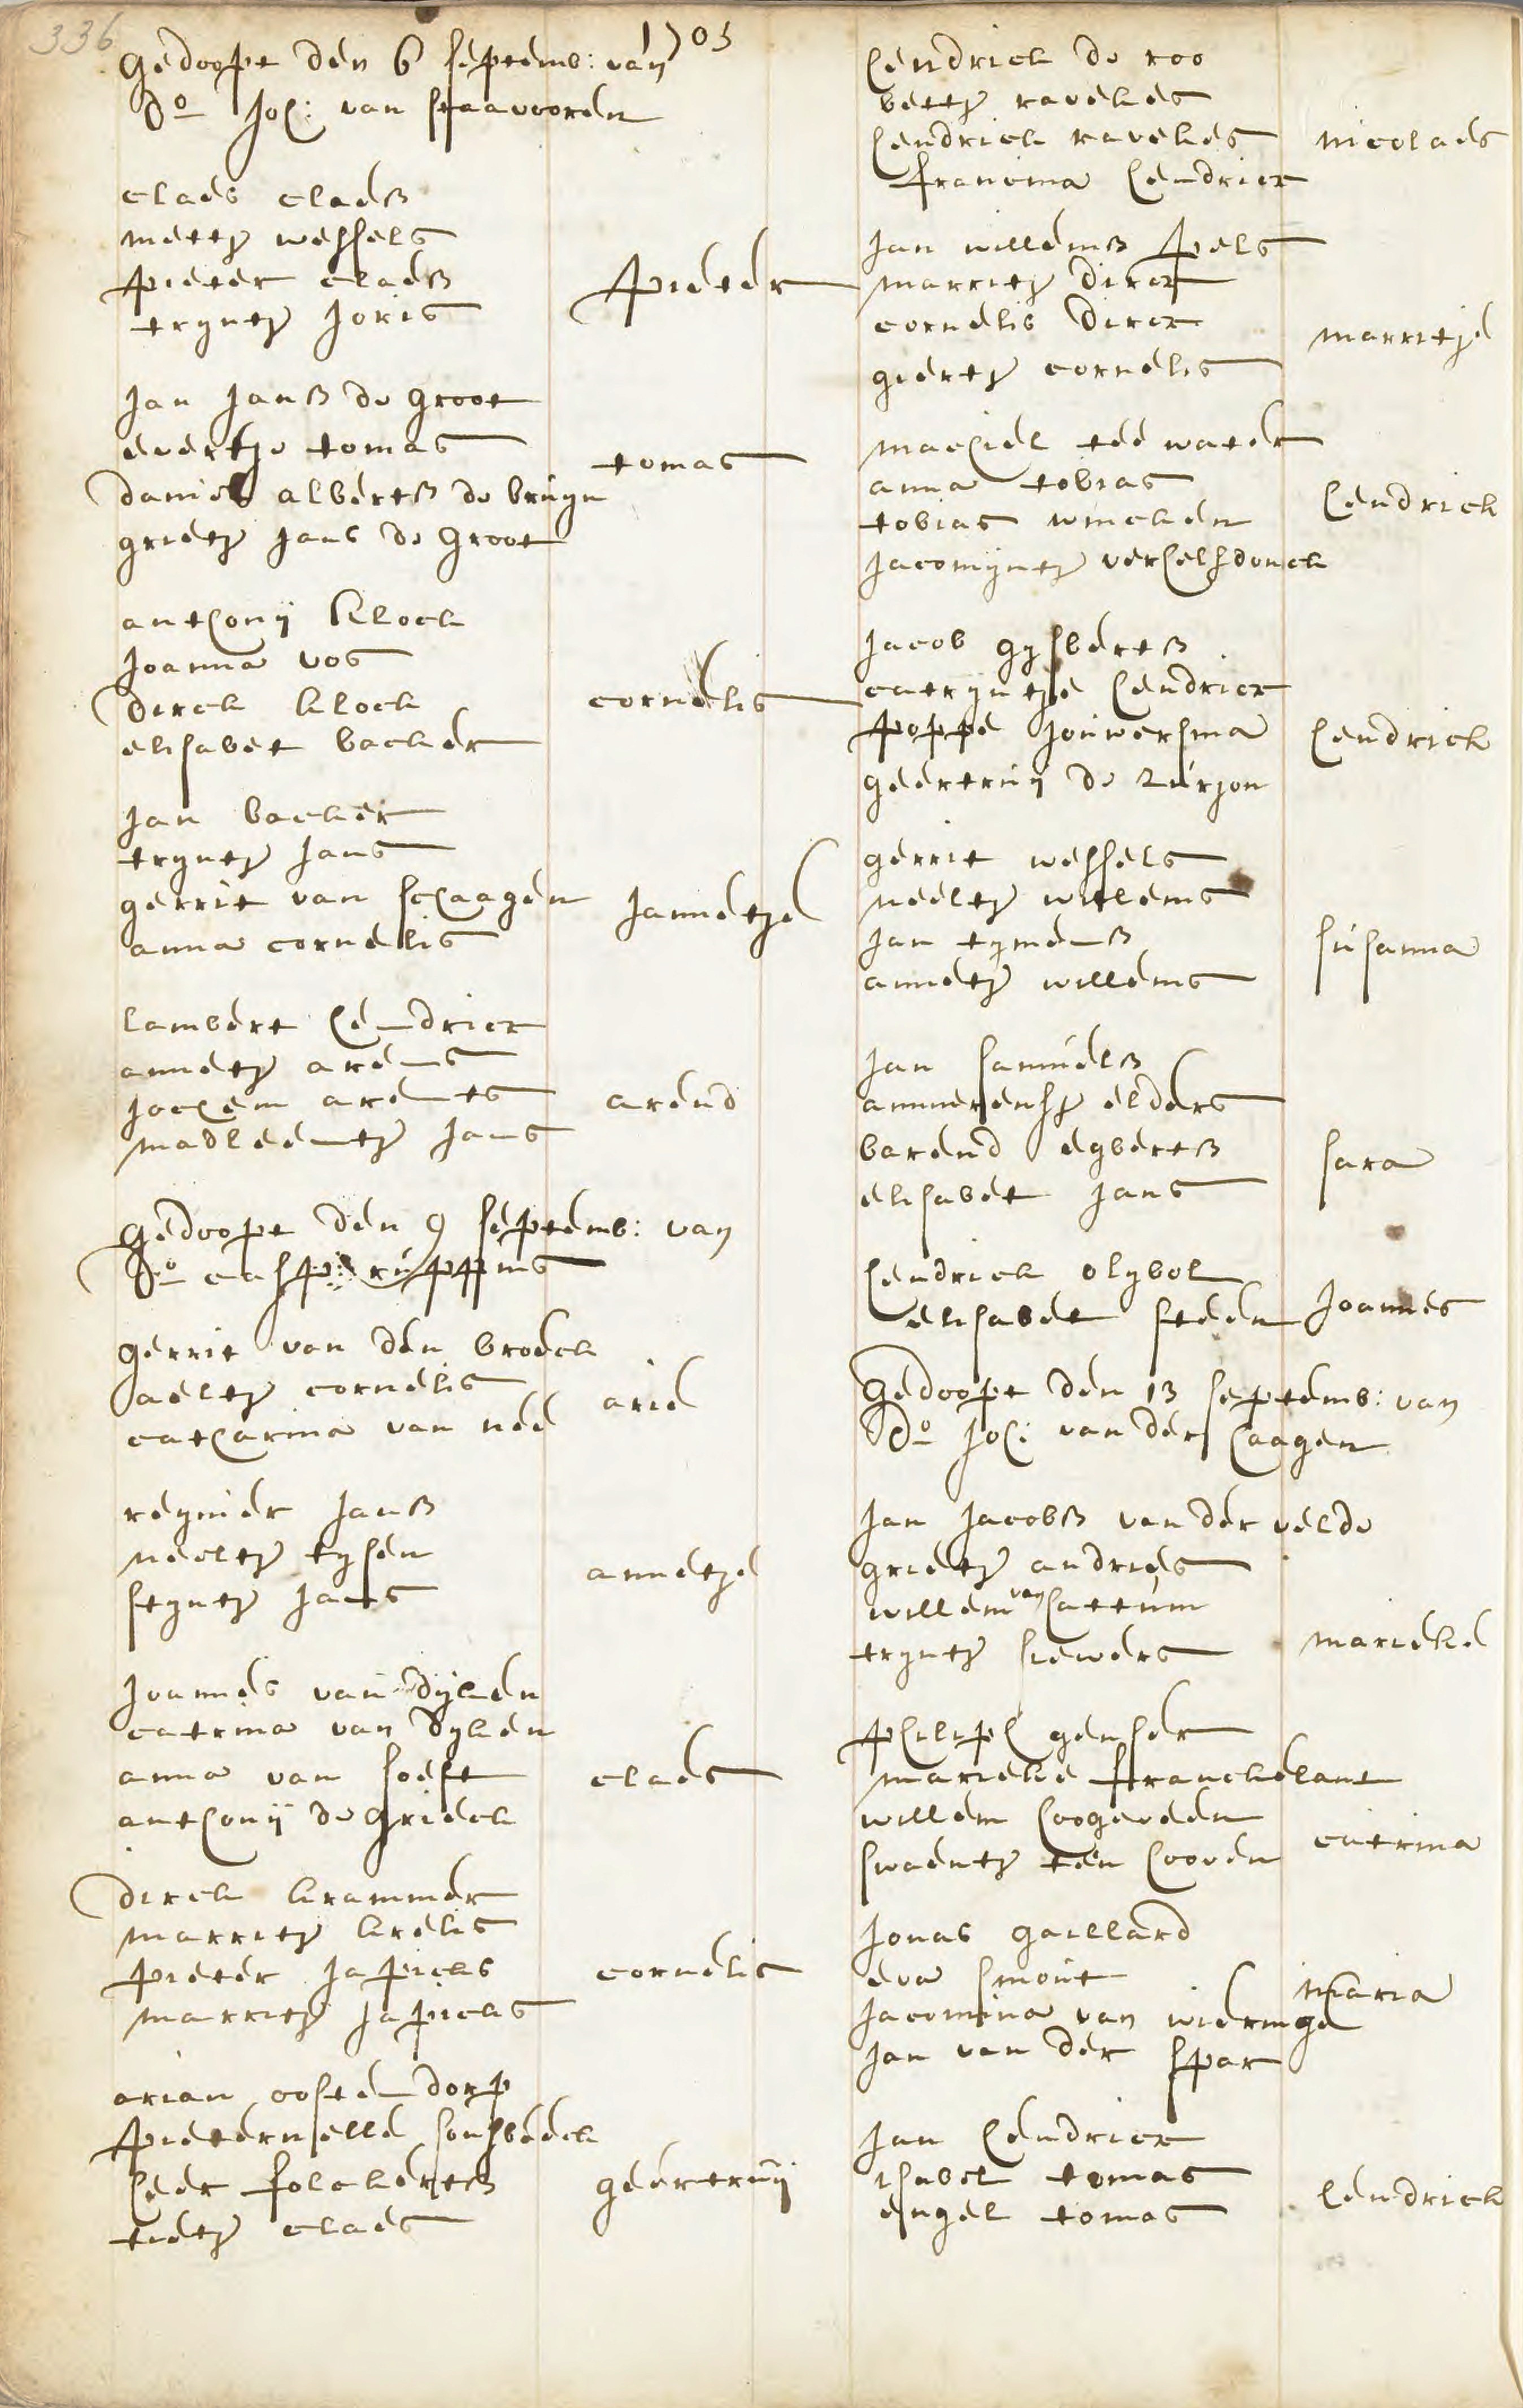 336
1703
Gedoopt den 6 septemb: van
do Joh: van staavoorden
claes claesz
mettj wessels
pieter claesz
tryntj Joris
pieter
Jan Jansz de groot
evertje tomas
daniel albertsz de bruyn
grietj Jans de groot
tomas
anthonij klock
Joanna vos
dirck klock
elisabet backer
cornelis
Jan backer
tryntj Jans
gerrit van schaagen
anna cornelis
Jannetje
lambert hendricx
annetj arents
Jochem arents
madleentj Jans
arend
Gedoopt den 9 septemb: van
do casp: ruppius
gerrit van den broeck
aeltj cornelis
catharina van nee
arie
reynier Jansz
neeltj tysen
styntj Jans
annetje
Joannes van dyken
catrina van dyken
anna van soest
anthonij de grieck
claes
dirck krammer
marritj krelis
pieter Japicks
marritj Japicks
cornelis
arian oostendorp
pieternelle honsbeeck
heer folckertsz
tietj claes
geertruij
hendrick de roo
bettj ravekes
hendrick ravekes
francina hendricx
nicolaes
Jan willemsz pels
marritj dircx
cornelis dircx
giertj cornelis
marritje
machiel tee water
anna tobias
tobias wincken
Jacomijntj verhelsdonck
hendrick
Jacob gysbertsz
catryntje hendricx
poppe Jouwersma
geertruij de
hendrick
gerrit wessels
neeltj willems
Jan tymensz
annetj willems
susanna
Jan samuelsz
ammerensj elders
barend egbertsz
elisabet Jans
sara
hendrick olybol
elisabet steen
Joannes
Gedoopt den 13 septemb: van
do Joh: van der haagen
Jan Jacobsz van der velde
grietj andries
willem van hattum
tryntj siewers
marieke
philiph genser
marieke franckelant
willem hoogeveen
swaentj ten hooven
catrina
Jonas gaillard
eva smout
Jacomina van wieringe
Jan van der spar
maria
Jan hendricx
isabel tomas
engel tomas
hendrick